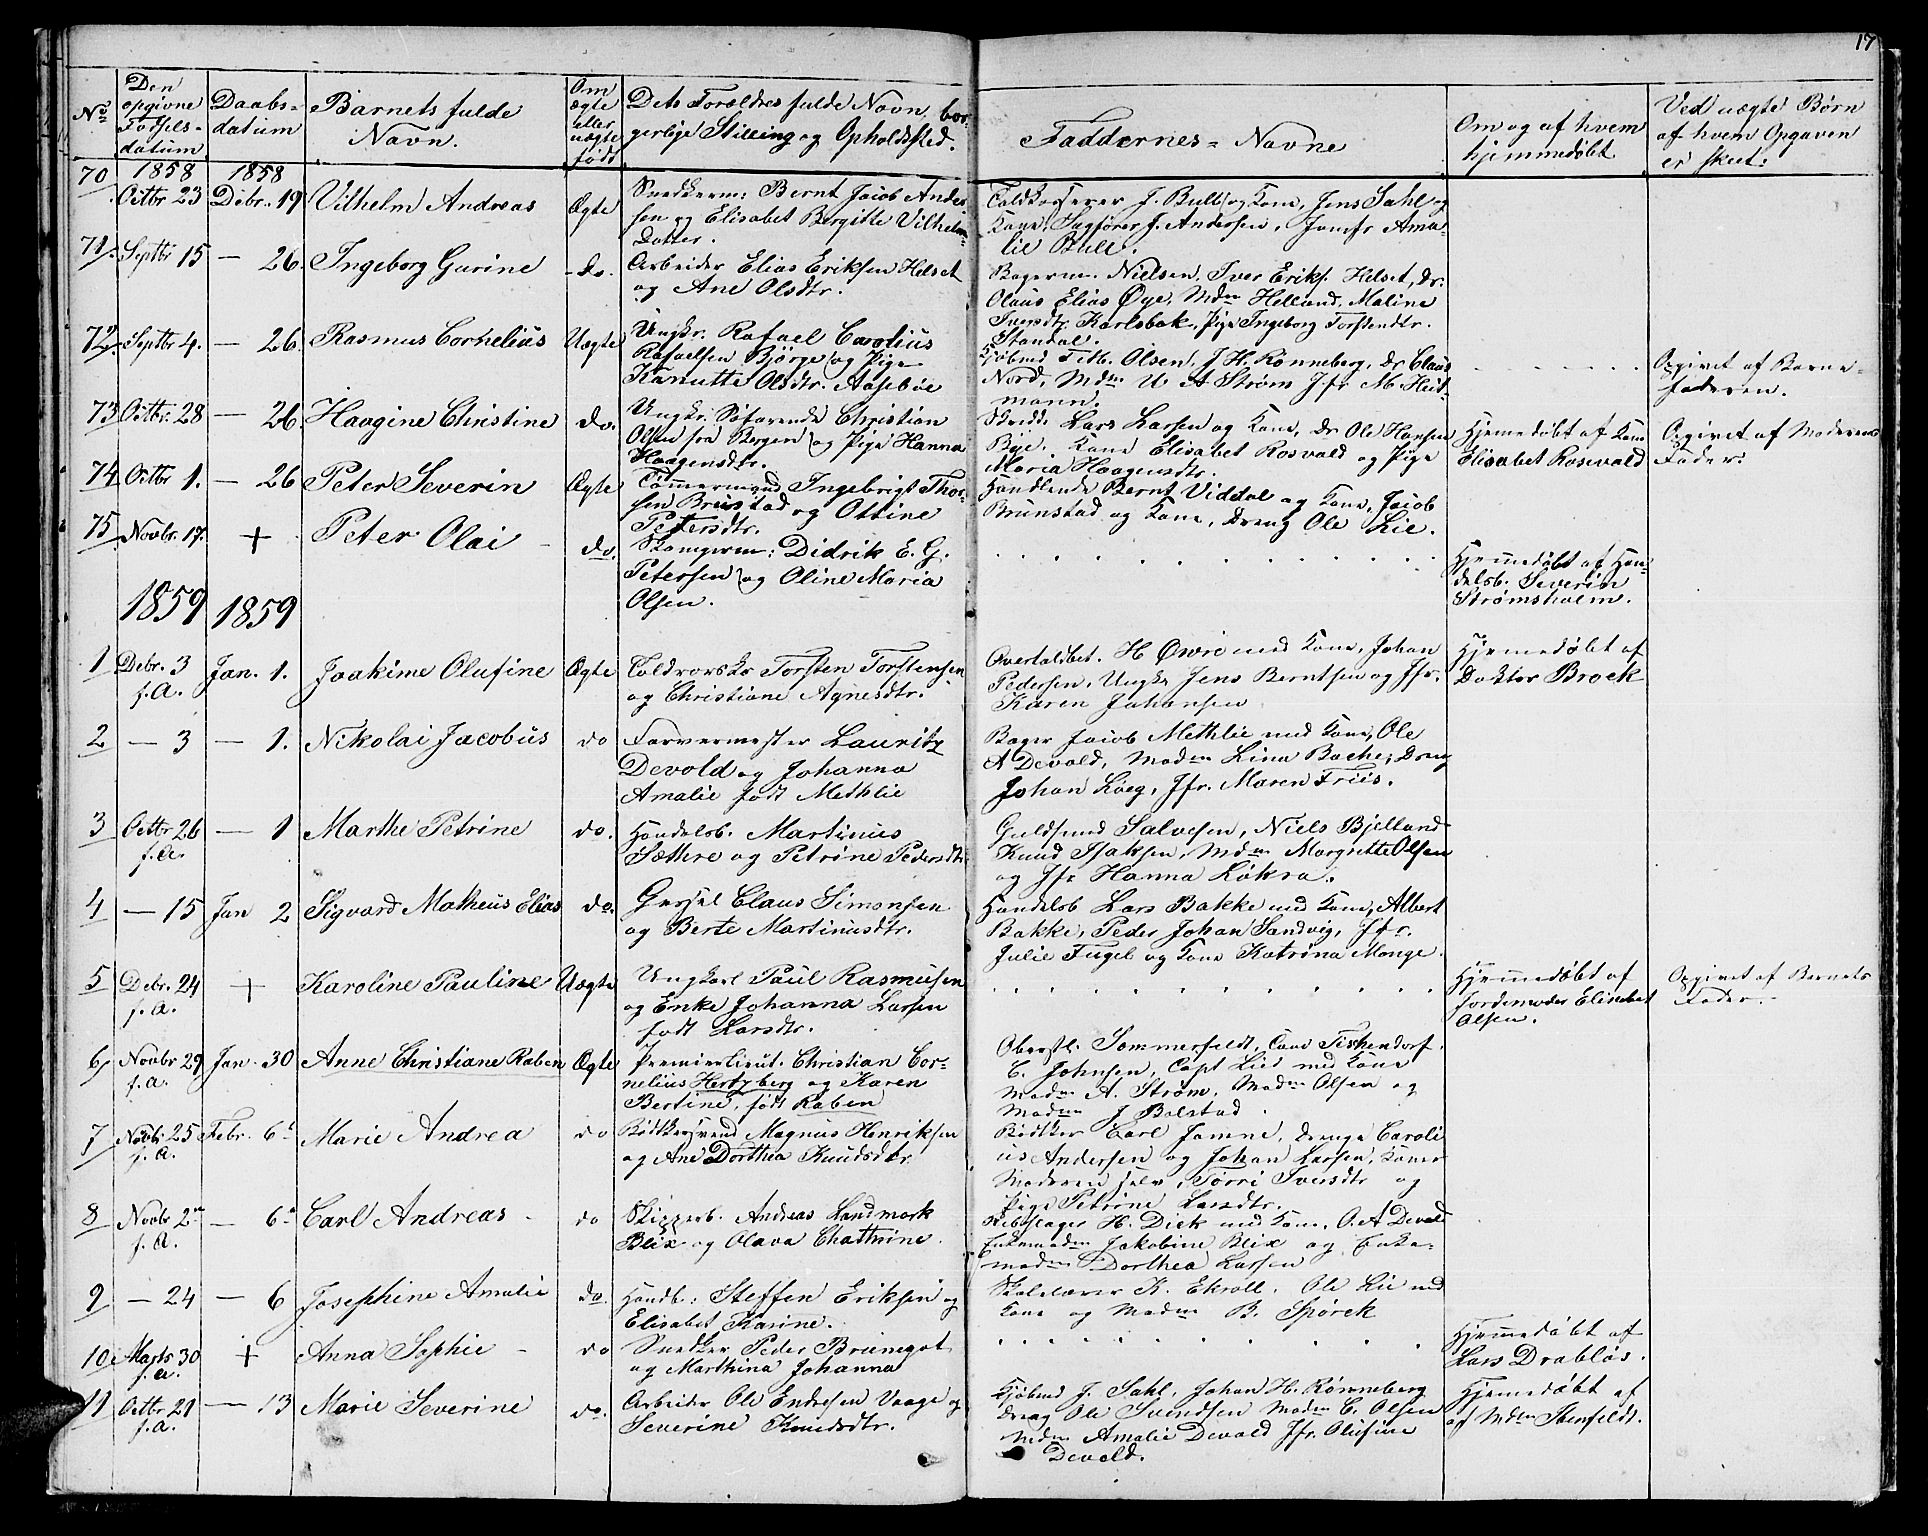 17
No
Den opgivne Fødsels-datum
Daabs-datum
Barnets fulde Navn.
Om ægte eller uægte født
Dets Forældres fulde Navn, borgerlige Stilling og Opholdssted.
Faddernes-Navne
Om og af hvem hjemmedøbt
Ved uægte Børn af hvem Opgaven er skeet.
1858 1858
70 Octbr 23 Debr. 19 Vilhelm Andreas Ægte
Snedkerm: Bernt Jacob Ander-
sen og Elisabet Bergitte Vilhelm-
Datter.
J. Bull og Kone, Jens Dahl og
Kone, Sagfører J. Andersen, Jomfr Ama-
lie Bull.
71. Septbr 15 — 26. Ingeborg Gurine do.
Arbeider Elias Eriksen Helset
og Ane Olsdtr.
Bagerm. Nielsen, Iver Eriks. Helset, Dr.
Olaus Elias Øye, Mdm Helland, Maline
Iversdtr. Karlsbak, Pige Ingeborg Torstendtr.
Standal.
72. Septbr 4. — 26. Rasmus Cornelius Uægte
Ungkr. Rafael Carolius
Rafaelsen Bjørge og Pige
Kanutte Olsdtr. Aasebøe
Kjøbmd Olsen, J H. Rønneberg, Dr Claus
Nord, Mdm U. A Strøm Jfr M. Heit-
mann.
Opgivet af Barne-
faderen.
73 Octbr. 28 — 26. Haagine Christine do.
Ungkr. Søfarende Christian
Olsen fra Bergen og Pige Hanna
Haagensdtr.
Lars Larsen og Kone, Dr Ole Hansen
Bye. Kone Elisabet Rosvald og Pige
Maria Haagensdtr.
Hjemedøbt af Kone
Elisabet Rosevald
Opgivet af Moderens
Fader.
74 Octbr 1. — 26 Peter Severin Ægte
Tømmermand Ingebrigt Thor-
sen Brunstad og Ottine
Petersdtr.
Handlende Bernt Viddal og Kone, Jacob
Brunstad og Kone, Dreng Ole Lie.
75 Novbr. 17. + Peter Olai do.
Didrik E. G.
Petersen og Oline Maria
Olsen.
Hjemmedøbt af Han-
delsb. Severin
Strømsholm.
1859 1859
1 Debr. 3 f.A. Jan. 1. Joakime Olufine Ægte
Toldrorsks Torsten Torstensen
og Christiane Agnesdtr.
Overtoldbet. H Øwre med Kone, Johan
Pedersen, Ungkr Jens Berntsen og Jfr.
Karen Johansen
Hjemedøbt af
Doktor Brock
2 — 3 — 1. Nikolai Jacobus do
Farvermester Lauritz
Devold og Johanna
Amalie født Methlie
Bager Jacob Methlie med Kone, Ole
A Devold, Madm Lina Bache, Dreng
Johan Løeg, Jfr. Maren Friis.
3 Octbr 26 f.A. — 1 Marthe Petrine do.
Handelsb. Martinus
Sæthre og Petrine Pedersdtr
Guldsmed Salvesen, Niels Bjelland
Knud Isaksen, Mdm Margrette Olsen
og Jfr Hanna Løkra.
4 — 15 Jan 2 Sigvard Matheus Elias do.
Gersel Claus Simonsen
og Berte Martinusdtr.
Handelsb Lars Bakke med Kone, Albert
Bakke, Peder Johan Sandvig, Jfr.
Julie Fugel og Kone Katrina Monge.
5 Debr. 24 f.A. + Karoline Pauline Uægte
Ungkarl Paul Rasmusen
og Enke Johanna Larsen
født Larsdtr.
Hjemmedøbt af
Jordemoder Elisabet
Olsen.
Opgivet af Barnets
Fader.
6 Novbr 29 f.A. Jan. 30 Anne Christiane Raben Ægte
Premierlieut. Christian Cor-
nelius Hertzberg og Karen
Bertine, født Raben
Oberstl. Sommerfeldt, Cand Tischendorf.
C. Johnsen, Capt Lied med Kone
Madm A. Strøm, Madm Olsen og
Madm J Bolstad.
7 Novbr 25 f.A. Febr. 6 Marie Andrea do
Bødkersvend Magnus Henriksen
og Ane Dorthea Knudsdtr
Bødker Carl Jamne, Drenge Caroli
us Andersen og Johan Larsen, Koner
Moderen selv, Torri Iversdtr og
Pige Petrine Larsdtr.
8 Novbr 2 f.A. — 6 Carl Andreas do
Skipperb. Andreas Landmark
Blix og Olava Chattrine.
Rebslager H. Dick med Kone, O. A Devold
Enkemadm Jakobine Blix og Enke-
madm Dorthea Larsen
9 — 24 — 6 Josephine Amalie do.
Handb: Steffen Eriksen og
Elisabet Karine.
Skolelærer K. Ekroll, Ole Lie med
Kone og Madm B. Spørck
10 Marts 30 f.a. + Anna Sophie do
Snedker Peder Brunegot
og Marthina Johanna
Hjemmedøbt af
Lars Drabløs.
11 Octbr 21 f.A. — 13 Marie Severine do.
Arbeider Ole Endresen Vaage og
Severine Knudsdtr.
Kjøbmd J. Dahl, Johan H. Rønneberg
Dreng Ole Svendsen Madm C. Olsen
Mdm Amalie Devold Jfr. Olufine
Devold.
Hjemedøbt af
af Mdm Stenfeldt.